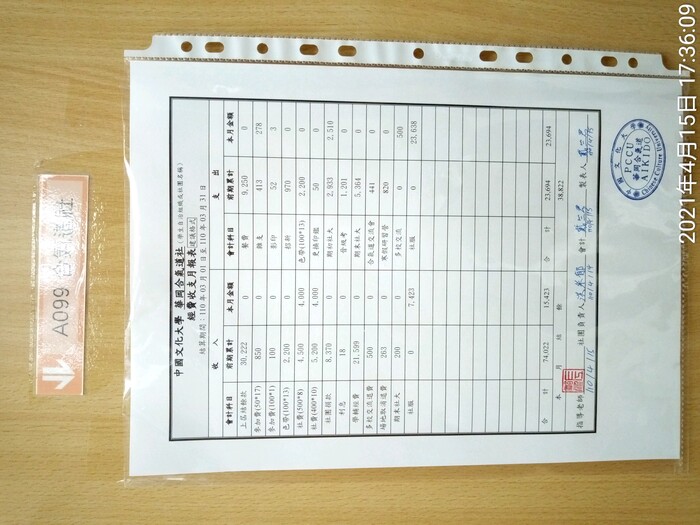 2021年4月15日 17:36:09
A099 合氣道社
中國文化大學 華岡合氣道社 (學生自治組織或社團名稱)
經費收支月報表 建議格式
結算期間:110年03月01日至110年03月31日
收 入 支 出
會計科目 前期累計 本月金額 會計科目 前期累計 本月金額
上屆結餘款 30,222 0 餐費 9,250 0
參加費(50*17) 850 0 雜支 413 278
參加費(100*1) 100 0 影印 3 52
色帶(100*13) 2,200 0 970 0
社費(500*8) 4,500 4,000 色帶(100*13) 2,200 0
社費(400*10) 5,200 4,000 更換印鑑 50 0
社團捐款 8,370 0 期初社大 2,933 2,510
利息 18 0 1,201 0
學輔經費 21,599 0 期末社大 5,364 0
多校交流退費 500 0 合氣道交流會 441 0
場地取消退費 263 0 寒假研習營 820 0
期末社大 200 0 多校交流 0 500
社服 0 7,423 社服 0 23,638
合 計 74,022 15,423 合 計 23,694 23,694
本 月 結 餘 38,822
指導老師 社團負責人 會計 製表人
110/4/15
中國文化大學
PCCU
華岡合氣道
AIKIDO
Chinese Culture University